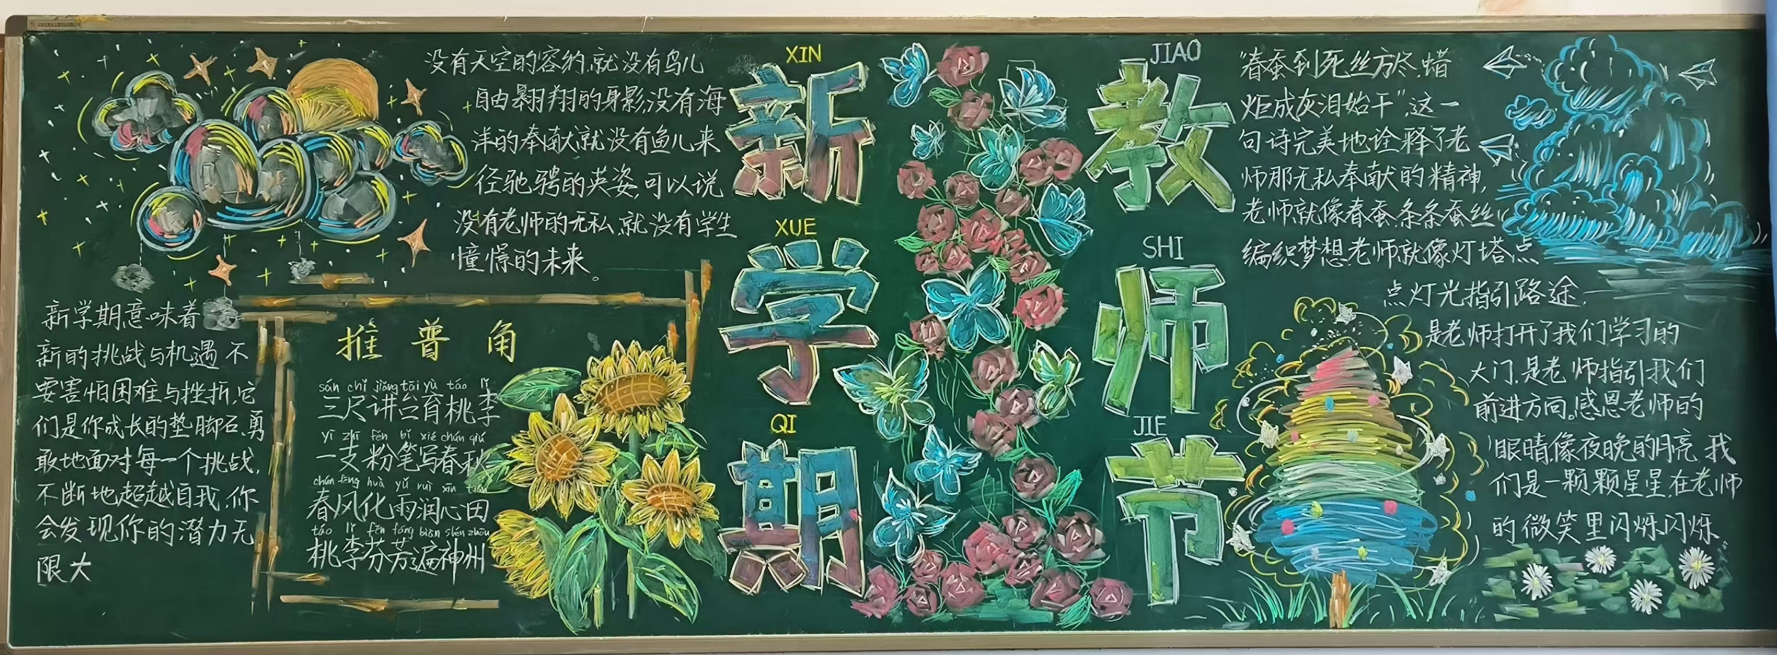 没有天空的容纳,就没有鸟儿
自由翱翔的身影,没有海
洋的奉献,就没有鱼儿来
径驰骋的英姿,可以说
没有老师的无私,就没有学生
憧憬的未来。
新学期,意味着
新的挑战与机遇,不
要害怕困难与挫折,它
们是你成长的垫脚石,勇
敢地面对每一个挑战,
不断地超越自我,你
会发现你的潜力无
限大
推普角
sān chǐ jiǎng tāi yù táo lǐ
三尺讲台育桃李
yī zhī fěn bǐ xiě chūn qiū
一支粉笔写春秋
chūn fēng huà yǔ rùn xīn tián
春风化雨润心田
táo lǐ fēn fāng biàn shén zhōu
桃李芬芳遍神州
XIN
新
XUE
学
QI
期
JIAO
教
SHI
师
JIE
节
"春蚕到死丝方尽,蜡
炬成灰泪始干",这一
句诗完美地诠释了老
师那无私奉献的精神,
老师就像春蚕,条条蚕丝
编织梦想,老师就像灯塔,点
点灯光指引路途,
是老师打开了我们学习的
大门,是老师指引我们
前进方向。感恩老师的
眼睛像夜晚的月亮,我
们是一颗颗星星在老师
的微笑里闪烁闪烁。